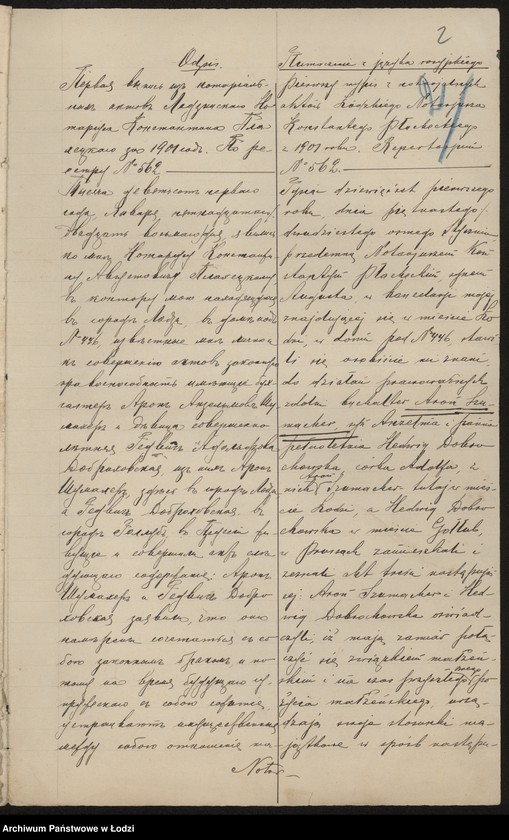 2
Odpis.
Первая выпись изъ нотаріаль-
ныхъ актовъ Лодзинскаго Но-
таріуса Константина Пла-
хецкаго за 1901 годъ. По ре-
естру № 562
Тысяча девятьсотъ перваго
года, Января пятнадцатаго/
двадцать восьмого дня, явились
ко мнѣ Нотаріусу Константи-
ну Августовичу Плахецкому
въ контору мою находящуюся
въ городѣ Лодзи, въ домѣ подъ
№ 446, извѣстные мнѣ лично и
къ совершенію актовъ законную
правоспособность имѣющіе бух-
галтеръ Аронъ Анзельмовъ Шу-
махеръ и дѣвица совершенно-
лѣтняя Гедвигъ Адольфовна
Добраховская, изъ нихъ Аронъ
Шумахеръ здѣсь въ городѣ Лодзи
а Гедвигъ Добраховская, въ
городѣ Голлубъ, въ Пруссіи жи-
вущіе и совершили актъ слѣ-
дующаго содержанія: Аронъ
Шумахеръ и Гедвигъ Добра-
ховская заявили, что они
намѣрены сочетаться съ со-
бою законнымъ бракомъ и по-
тому на время будущаго су-
пружескаго съ собою сожитія,
устраиваютъ имущественныя
между собою отношенія на-
Tłumaczenie z języka rosyjskiego
Pierwszy wypis z notaryalnych
aktów Łódzkiego Notaryusza
Konstantego Płacheckiego
z 1901 roku. Repertorium
№ 562.
Tysiąc dziewięćset pierwszego
roku, dnia piętnastego/
dwudziestego ósmego Stycznia
przedemną Notaryuszem Kon-
stantym Płacheckim, synem
Augusta, w kancelaryi mojej
znajdującej się w mieście Ło-
dzi, w domu pod № 446, stawi-
li się osobiście mi znani
do działań prawnych
zdolni buchalter Aron Szu-
macher, syn Anzelma i panna
pełnoletnia Hedwig Dobra-
chowska, córka Adolfa, z
nich Aron Szumacher tutaj w mieś-
cie Łodzi, a Hedwig Dobra-
chowska w mieście Gollub,
w Prusach zamieszkali i
zeznali akt treści następują-
cej: Aron Szumacher i Hed-
wig Dobrachowska oświad-
czyli, iż mają zamiar połą-
czyć się związkiem małżeń-
skim i na czas przyszłego
życia małżeńskiego, urzą-
dzają swoje stosunki ma-
jątkowe w sposób następu-
Archiwum Państwowe w Łodzi